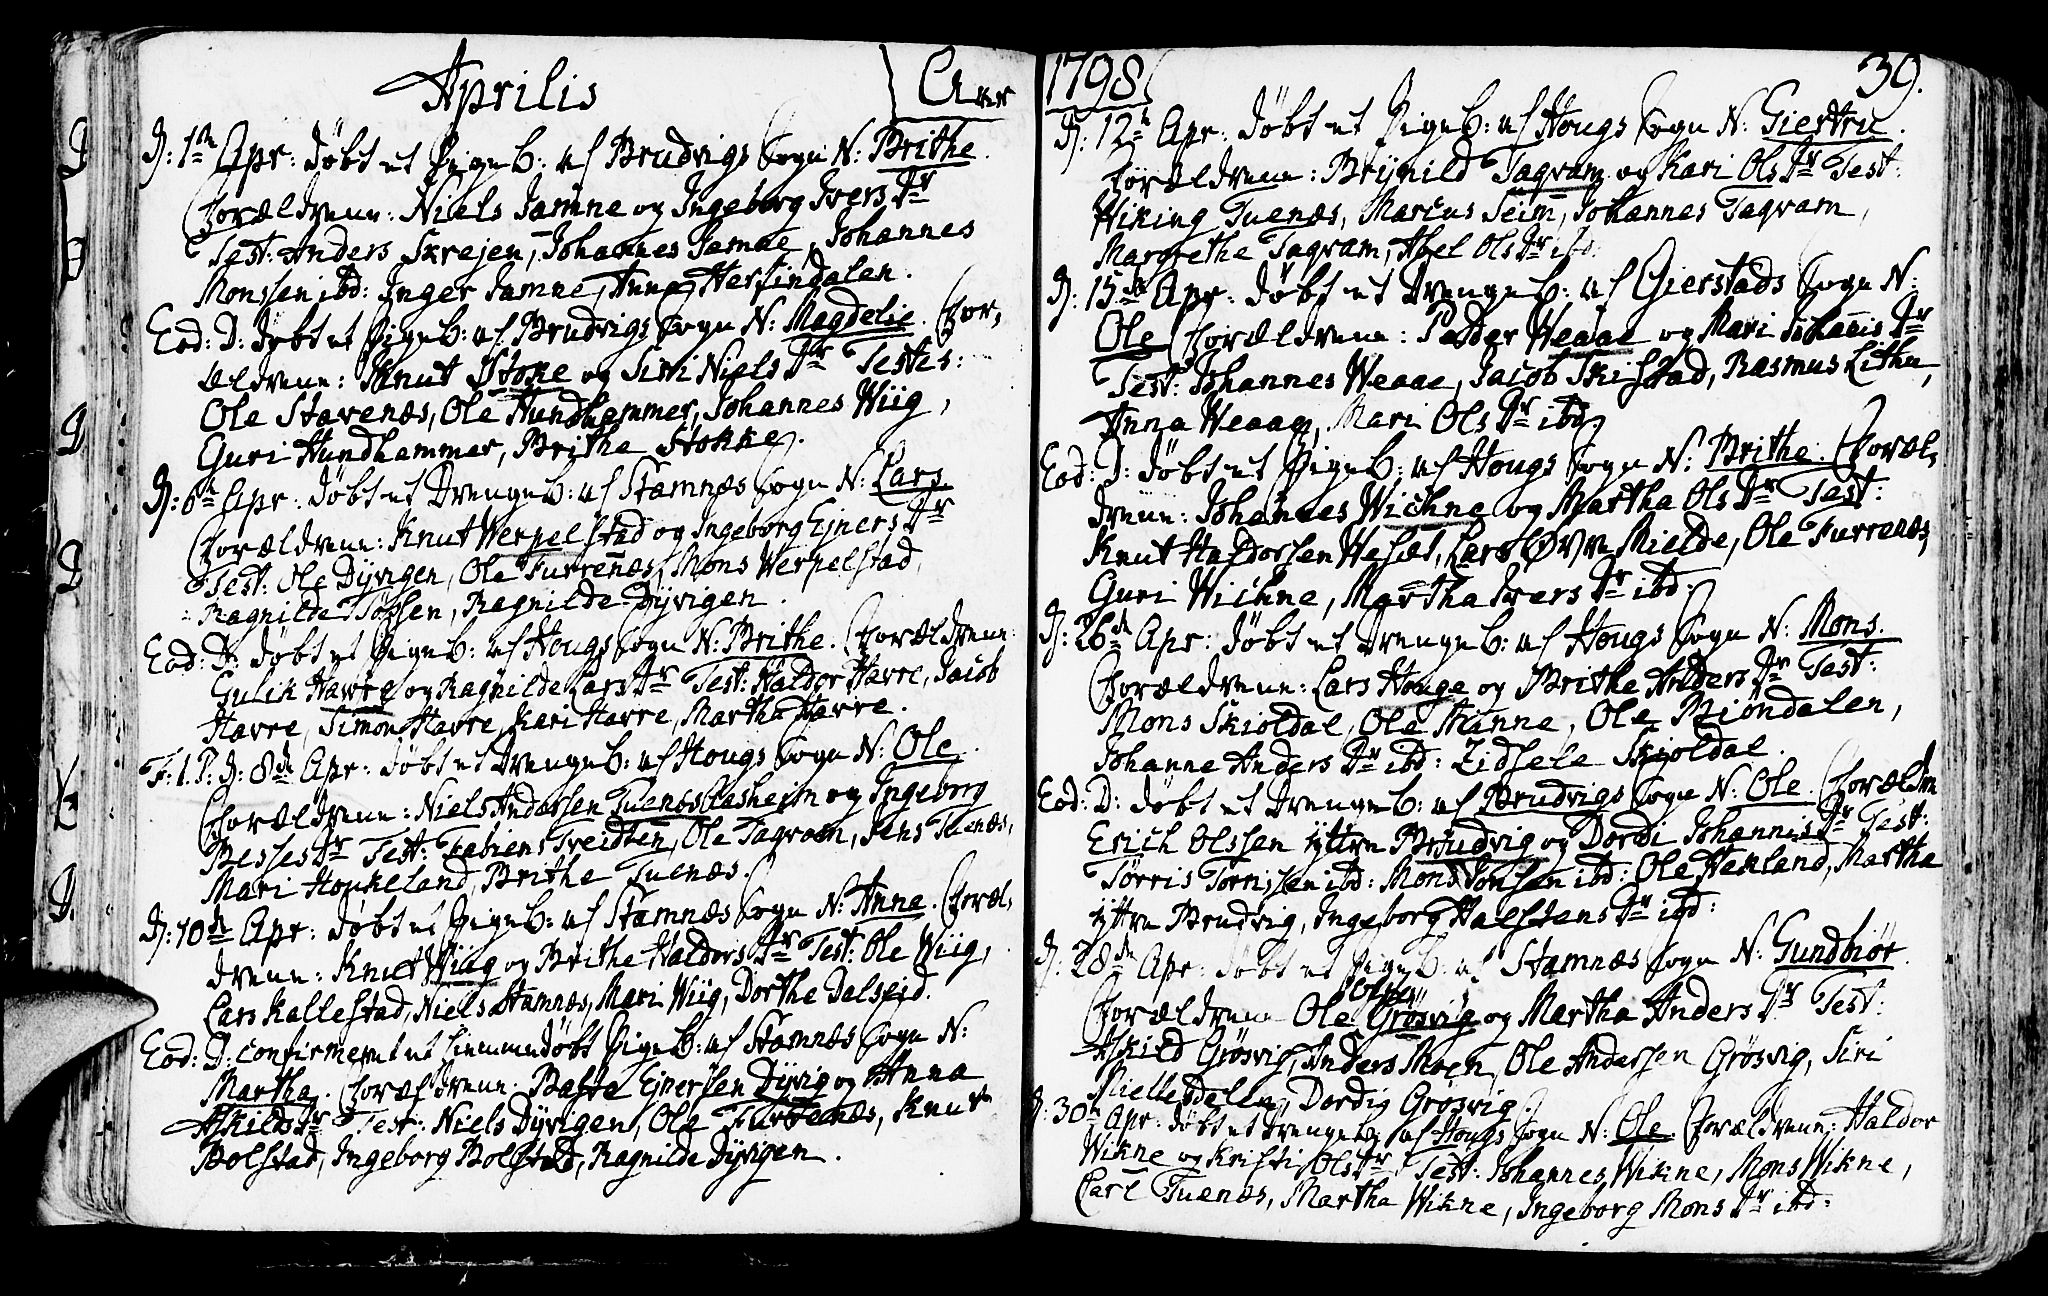 Aprilis
Anno
D: 1te Apr: døbt et Pigeb: af Brudvigs Sogn N: Brithe.
Forældrene: Niels Jamne og Ingeborg Ivers Dr
Test: Anders Skrejen, Johannes Jamne, Johannes
Monssen ibd: Inger Jamne, Anna Herfindalen.
Eod: D: døbt et Pigeb: af Brudvigs Sogn N: Magdelie. For,
ældrene: Knut Stoke og Siri Niels Dr Testes:
Ole Stavenæs, Ole Hundhammer, Johannes Wiig,
Guri Hundhammer, Brithe Stokke.
D: 6te Apr: døbt et Drengeb: af Stamnæs Sogn N: Lars.
Forældrene: Knut Werpelstad og Ingeborg Ejners Dr
Test: Ole Dyvigen, Ole Furrenæs, Mons Werpelstad,
Ragnilde Tøssen, Ragnilde Dyvigen.
Eod: D: døbt et Pigeb: af Hougs Sogn N: Brithe. Forældrene:
Gulik Havre og Ragnilde Lars Dr Test: Haldor Havre, Jacob
Havre, Simon Havre, Kari Havre, Martha Havre.
F: 1. P: D: 8de Apr: døbt et Drengeb: af Hougs Sogn N: Ole.
Forældrene: Niels Anderssen Tuenæs Casheim og Ingeborg
Besses Dr Test: Fabiens Treidten, Ole Tagvam, Jens Tuenæs,
Mari Houkeland, Brithe Tuenæs.
D: 10de Apr: døbt et Pigeb: af Stamnæs Sogn N: Anne. Foræl,
drene: Knut Wiig og Brithe Haldors Dr Test: Ole Wiig,
Lars Kallestad, Niels Stamnæs, Mari Wiig, Dorthe Dalseid.
Eod: D: confirmeret et hiemmedøbt Pigeb: af Stamnæs Sogn N:
Martha. Forældrene: Baste Ejnerssen Dyvig og Anna
Askilds Dr Test: Niels Dyvigen, Ole Furrenæs, Knut
Bolstad, Ingeborg Bolstad, Ragnilde Dyvigen.
1798
39.
D: 12te Apr: døbt et Pigeb: af Hougs Sogn N: Giertru.
Forældrene: Brynild Tagvam og Kari Ols Dr Test:
Wiking Tuenæs, Marcus Seim, Johannes Tagvam,
Margrethe Tagvam, Abel Ols Dr ibd:
D: 15de Apr: døbt et Drengeb: af Gierstads Sogn N:
Ole Forældrene: Peder Weaae og Mari Johannis Dr
Test: Johannes Weaae, Jacob Skifstad, Rasmus Lithu,
Anna Weaae, Mari Ols Dr ibd
Eod: D: døbt et Pigeb: af Hougs Sogn N: Brithe. Foræl,
drene: Johannes Wichne og Martha Ols Dr Test:
Knut Haldorssen Hesæt, Lars Øvre Mielde, Ole Furrenæs,
Guri Wichne, Martha Ivers Dr ibd:
D: 26de Apr: døbt et Drengeb: af Hougs Sogn N: Mons.
Forældrene: Lars Houge og Brithe Anders Dr Test:
Mons Skioldal, Ole Minne, Ole Biøndalen,
Johanne Anders Dr ibd: Zidsele Skioldal.
Eod: D: døbt et Drengeb: af Brudvigs Sogn N: Ole. Forældre
Erich Olssen yttre Brudvig og Dordi Johannis Dr Test:
Tørris Tørrissen ibd: Mons Jonssen ibd: Ole Hanland, Martha
yttre Brudvig, Ingeborg Halstens Dr ibd:
D: 28de Apr: døbt et Pigeb: af Stamnæs Sogn N: Gundbiør.
Forældrene Ole Olssen Grøsvig og Martha Anders Dr Test:
Askild Grøsvig, Anders Moen, Ole Anderssen Grøsvig, Siri
Mielledalen, Dordi Grøsvig.
D: 30te Apr: døbt et Drengeb: af Hougs Sogn N: Ole. Forældrene: Haldor
Wikne og Kristi Ols Dr Test: Johannes Wikne, Mons Wikne,
Carl Tuenæs, Martha Wikne, Ingeborg Mons Dr ibd: